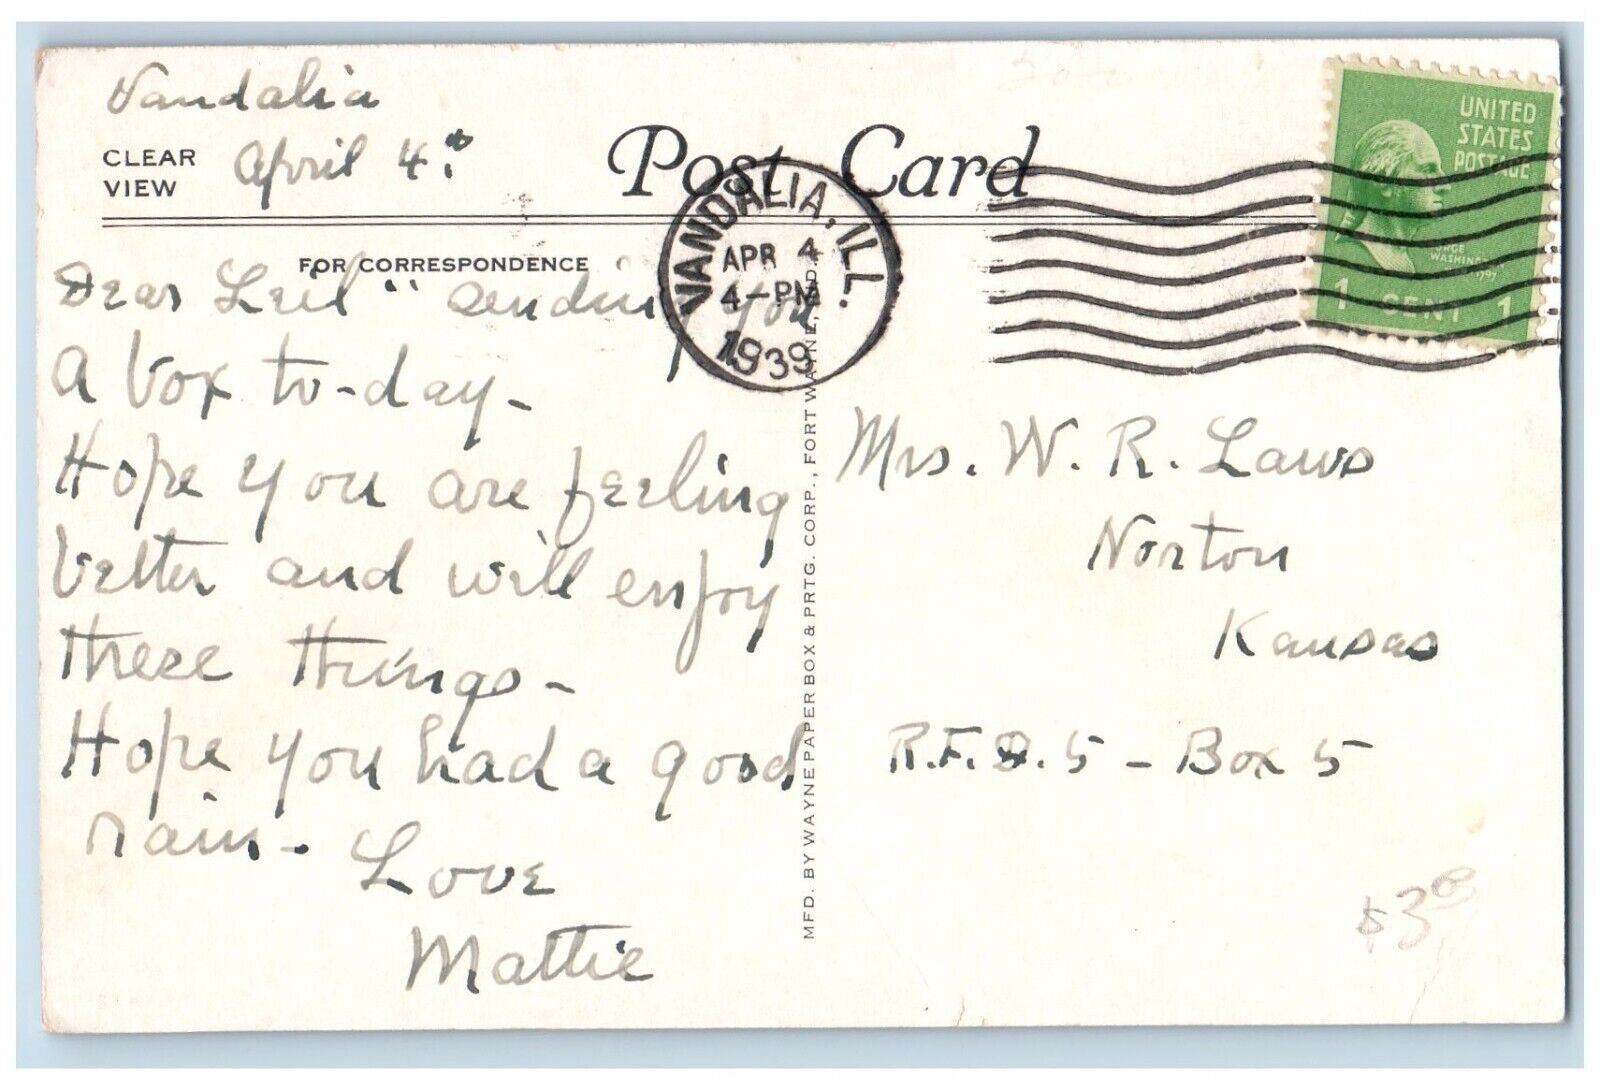 Vandalia
April 4th
CLEAR
VIEW
Post Card
FOR CORRESPONDENCE
VANDALIA, ILL.
APR 4
4-PM
1939
UNITED
STATES
POSTAGE
GEORGE
WASHINGTON
1 CENT 1
Dear Leil" sending you
A box to-day-
Hope you are feeling
better and will enjoy
these things-
Hope you had a good
rain-
Love
Mattie
MFD. BY WAYNE PAPER BOX & PRTG. CORP., FORT WAYNE, IND.
Mrs. W. R. Laws
Norton
Kansas
R.F.D. 5 - Box 5
$3.00